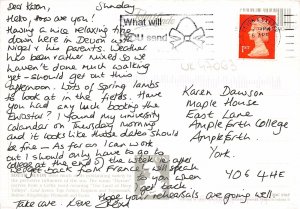 Dear Karen,
Sunday
Hello, how are you!
Having a nice relaxing time
down here in Devon with
Nigel & his parents. Weather
has been rather mixed so we
haven't done much walking
yet - should get out this
afternoon. Lots of Spring lambs
to look at in the fields. Have
you had any luck booking the
I found my university
calendar on Thursday morning
and it looks like those dates should
be fine - As far as I can work
out I should only have to go to
college at the end of the week after
I get back from France. I will speak
to you when I
get back.
Hope your rehearsals are going well -
Take care. Love
What will
you send
1ST
Karen Dawson
Maple House
East Lane
Ampleforth College
Ampleforth
York.
YO6 4HE